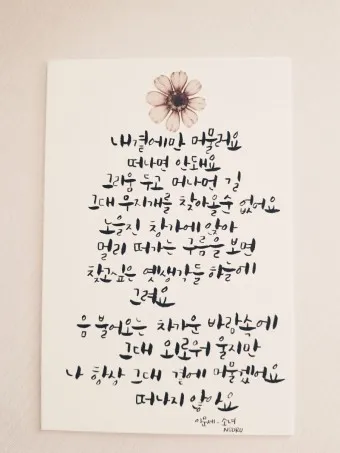 내곁에만 머물러요
떠나면 안돼요
그리움 두고 머나먼 길
그대 무지개를 찾아올순 없어요
노을진 창가에 앉아
멀리 떠가는 구름을 보면
찾고싶은 옛생각들 하늘에
그려요
음 불어오는 차가운 바람속에
그대 외로워 울지만
나 항상 그대 곁에 머물겠어요
떠나지 않아요
이문세 - 소녀